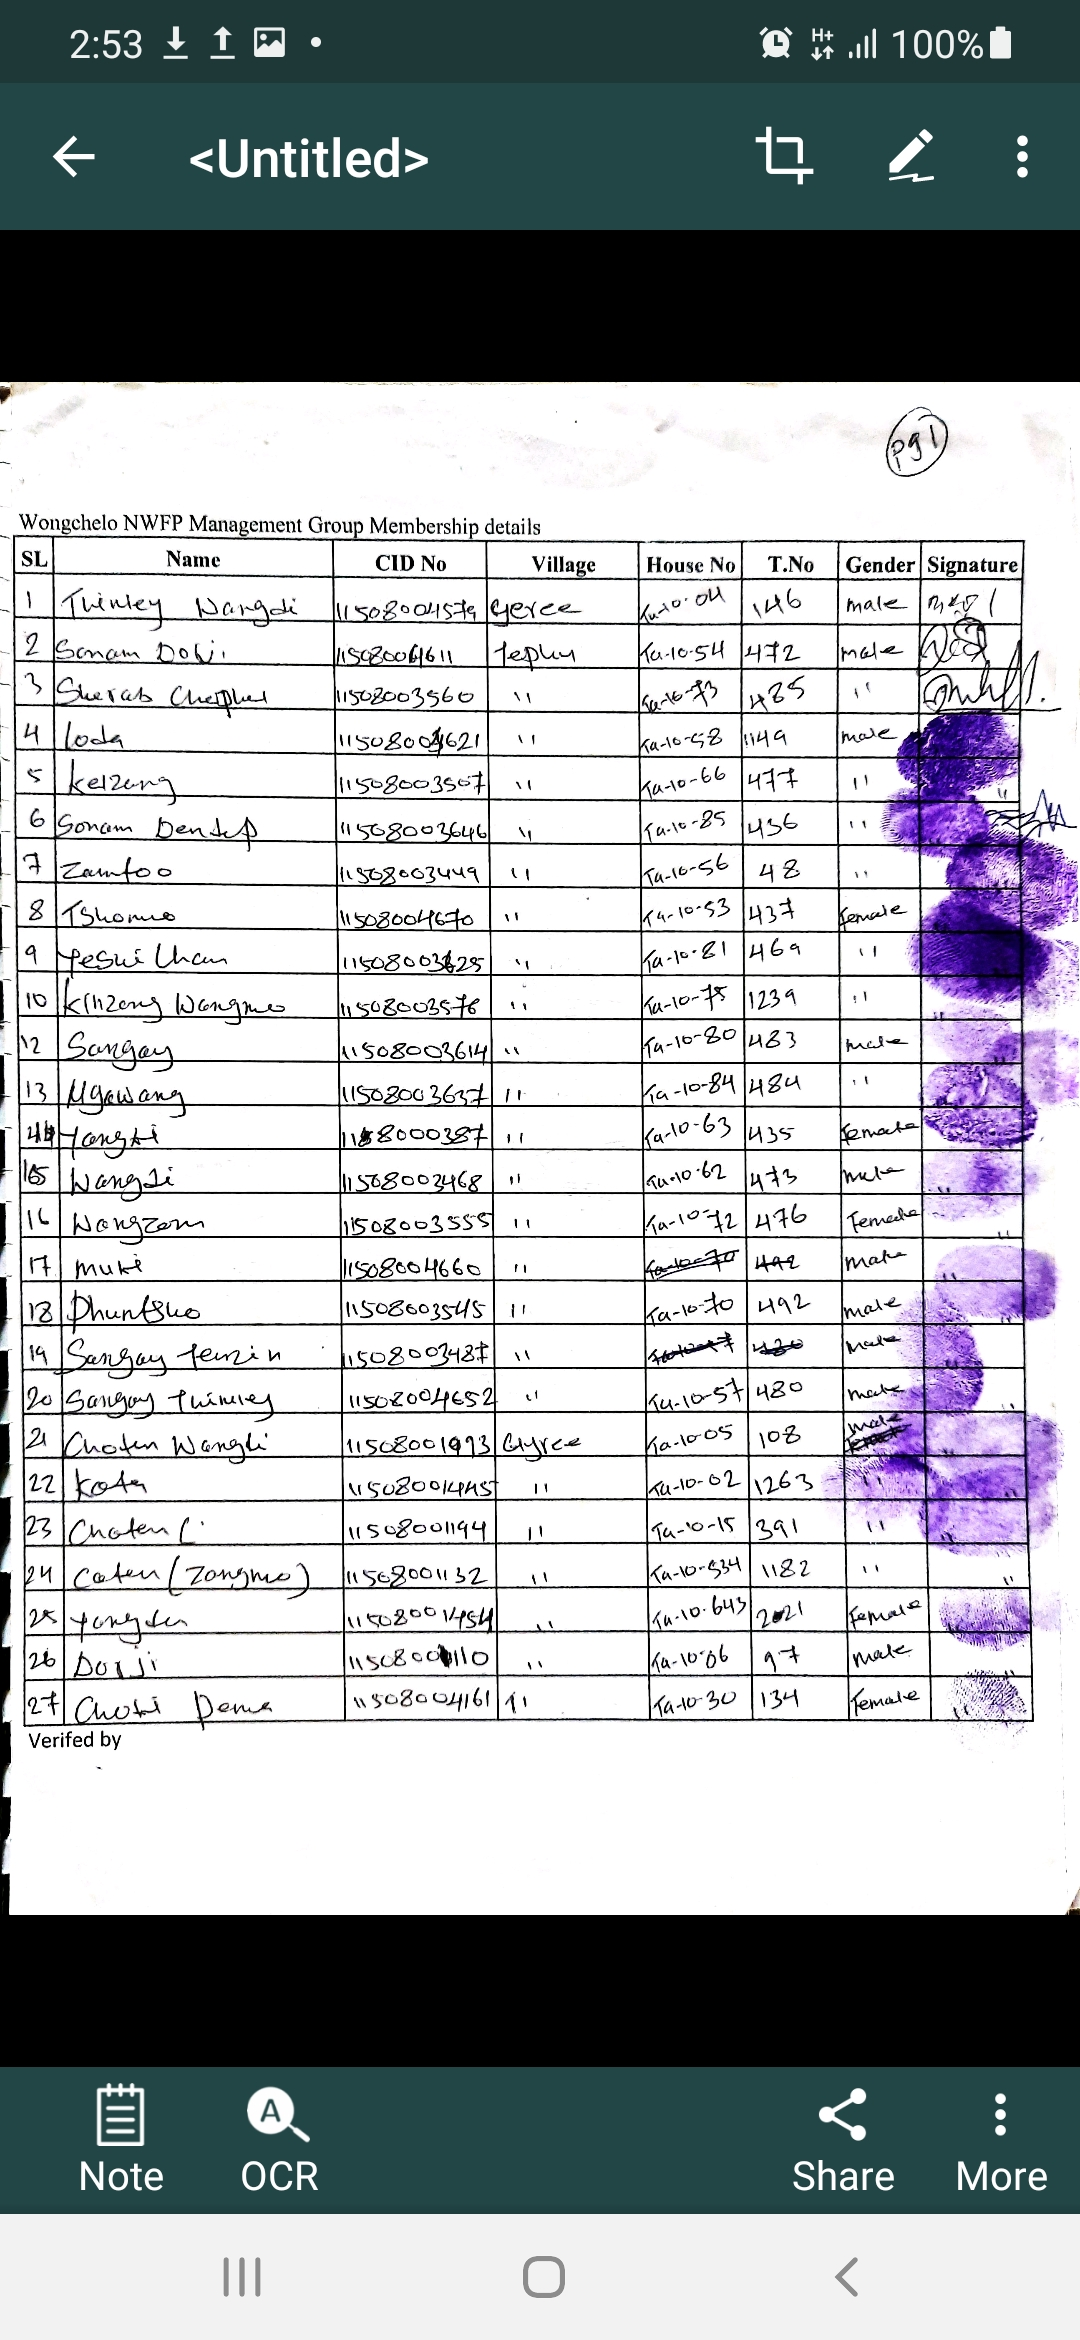 2:53 100%
<Untitled>
Pg 1
Wongchelo NWFP Management Group Membership details
SL Name CID No Village House No T.No Gender Signature
1 Thinley Wangdi 11508004579 Geree Ta-10-04 146 male
2 Sonam Dorji 472 male Ta-10-54
3 Sherab 11508003560 " Ta-10-73 485 "
4 11508004621 " Ta-10-58 1149 male
5 Kelzang 11508003507 " Ta-10-66 477 "
6 Sonam 11508003646 " Ta-10-85 436 "
7 11508003449 " Ta-10-56 48 "
8 Tshomo 11508004670 " Ta-10-53 437 Female
9 " Ta-10-81 469 "
10 Kinzang Wangmo 11508003576 " Ta-10-75 1239 "
12 Sangay 11508003614 " Ta-10-80 483 male
13 Ngawang 11508003637 " Ta-10-84 484 "
Yangki " Ta-10-63 435 Female
Wangdi 11508003468 " Ta-10-62 473 male
16 Wangzom 11508003555 " Ta-10-72 476 Female
17 11508004660 " male
18 Phuntsho 11508003545 " Ta-10-70 492 male
19 Sangay Tenzin 11508003487 " male
20 Sangay Thinley 11508004652 " Ta-10-57 480 male
21 Choten Wangdi 11508001993 Gyree Ta-10-05 108 male
22 Kota " Ta-10-02 1263 "
23 Choten 11508001194 " Ta-10-15 391 "
24 (Zongmo) 11508001132 " 1182 "
25 11508001454 " Ta-10-643 2021 Female
26 Dorji " Ta-10-06 97 male
27 Choki Dema 11508004161 " Ta-10-30 134 Female
Verifed by
Note OCR Share More